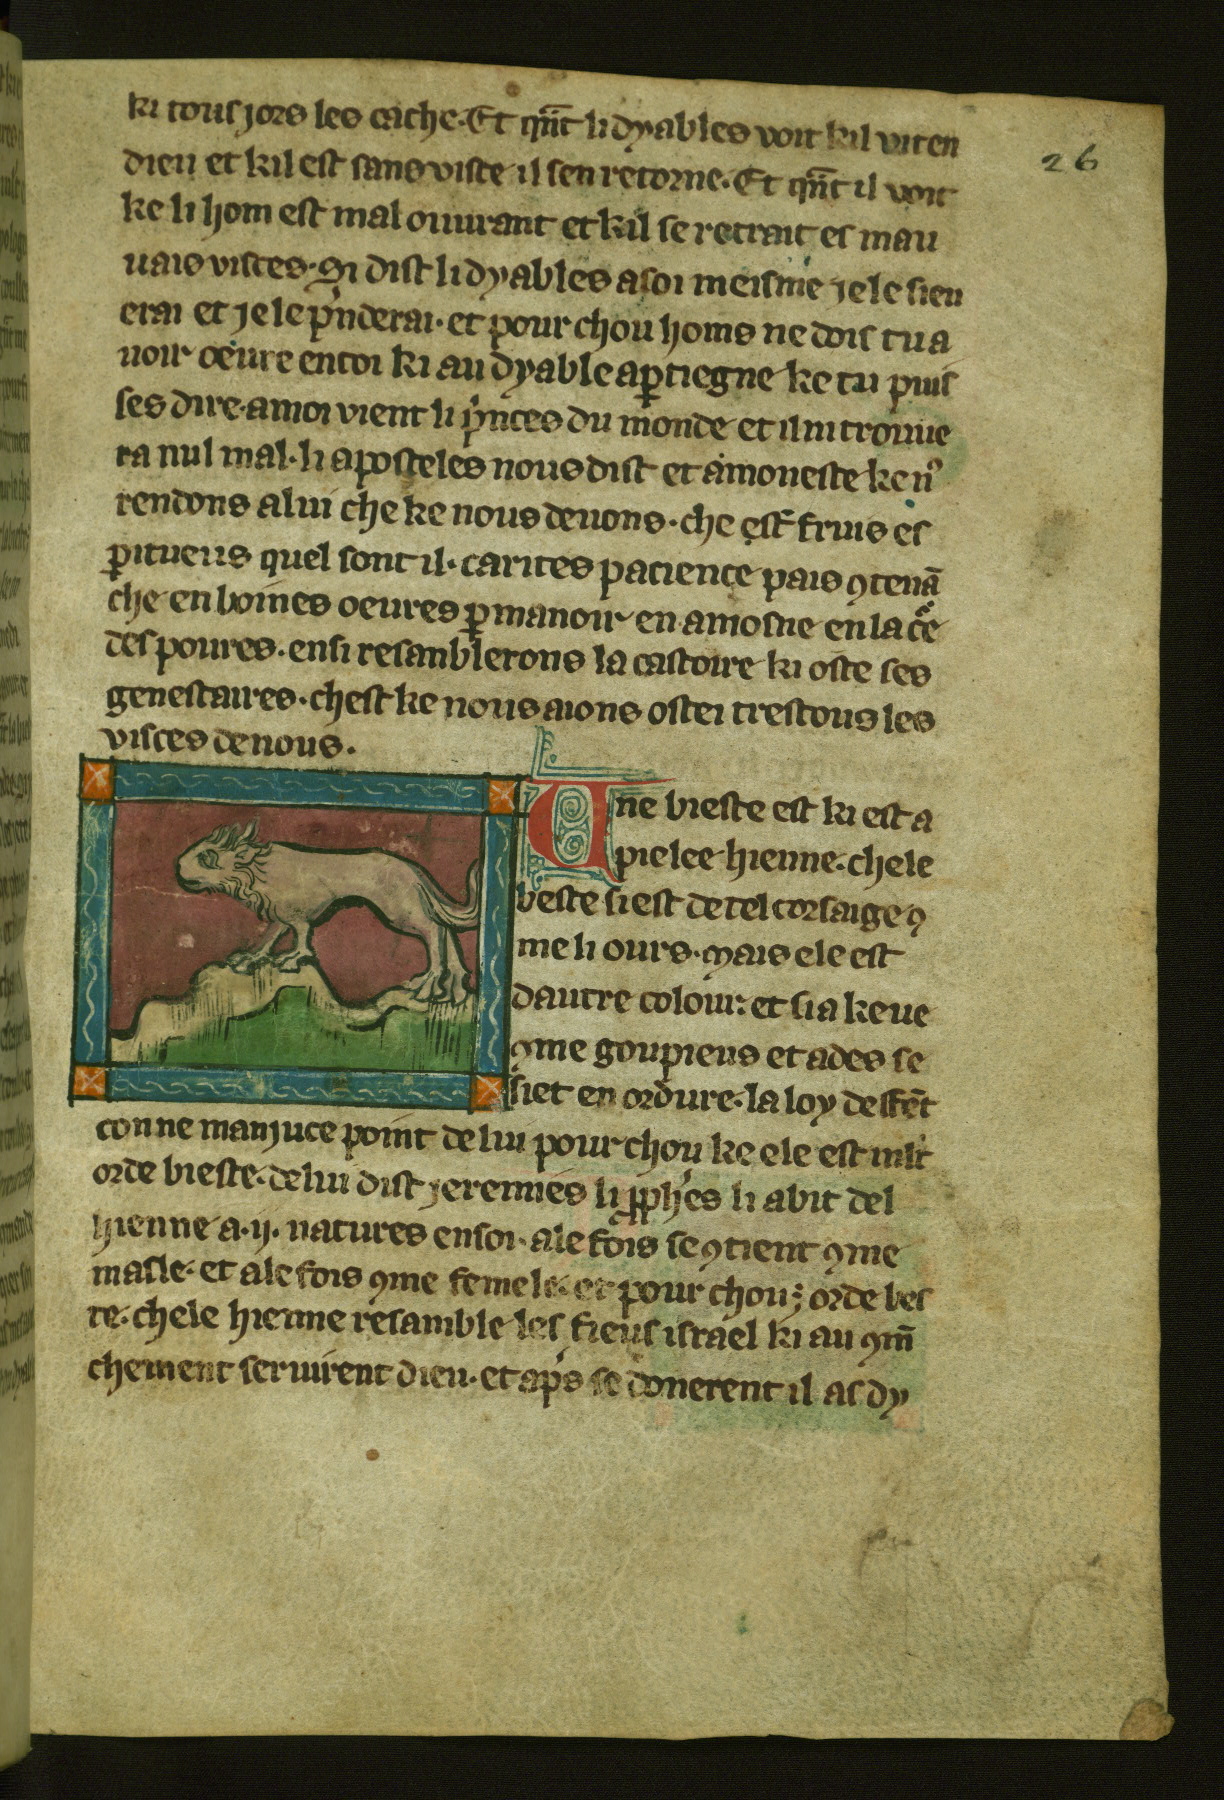 ki tous jors les cache. Et qn̄t li dyables voit kil vit en
26
dieu et kil est sans viste il sen retorne. Et qn̄t il voit
ke li hom est mal ouurant et kil se retrait es mau
uais visces. Si dist li dyables a soi meisme je le sieu
erai et je le p̾nderai. et pour chou homs ne dois tu a
uoir oeure en toi ki au dyable ap̱tiegne ke tu puis
ses dire. a moi vient li p̾nces du monde et il ni trouue
ra nul mal. li aposteles nous dist et amoneste ke nꝰ
rendons a lui che ke nous deuons. che est fruis es
ꝑitueus quel sont il. carites pacience pais ꝯtenā
che en boines oeures ꝑmanoir en amosne en la
des poures. ensi resanblerons la castoire ki oste ses
genestaires. chest ke nous aions ostei trestous les
visces de nous.
Une bieste est ki est a
pielee hienne. chele
beste si est de tel corsaige ꝯ
me li ours. mais ele est
dautre colour. et si a keue
ꝯme goupieus et ades se
siet en ordure. la loy deffēt
con ne manjuce point de lui pour chou ke ele est ml̄t
orde bieste. de lui dist jeremies li ꝓph̾es li abit del
hienne a .ij. natures en soi. a le fois se ꝯtient ꝯme
masle. et a le fois ꝯme femele. et pour chou ; orde bes
te. chele hienne resamble les fieus israel ki au ꝯm̄
chement seruirent dieu. et ap̾s se donerent il as dy